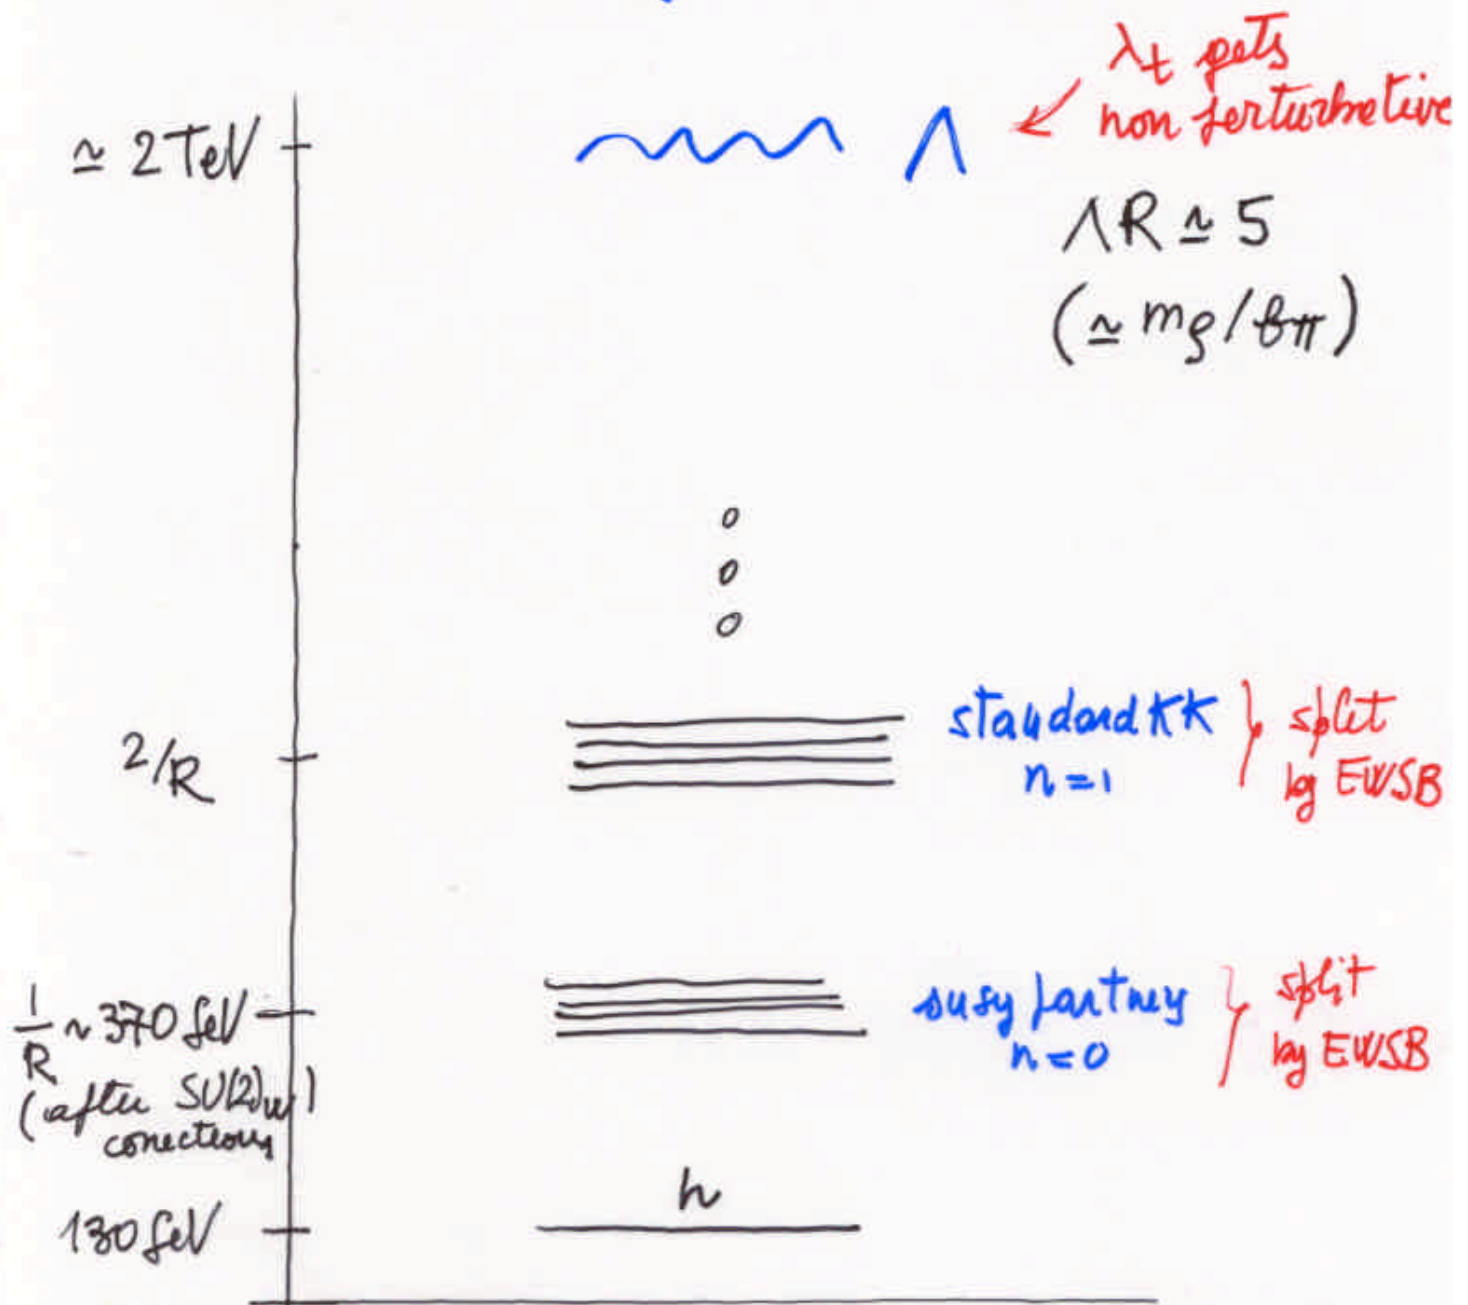 λt gets
non perturbative
≃ 2 TeV
Λ
ΛR ≃ 5
(≃ mρ/fπ)
2/R
standard KK
n=1
split
by EWSB
1/R ~ 370 GeV
(after SU(2)w)
corrections
susy partners
n=0
split
by EWSB
h
130 GeV